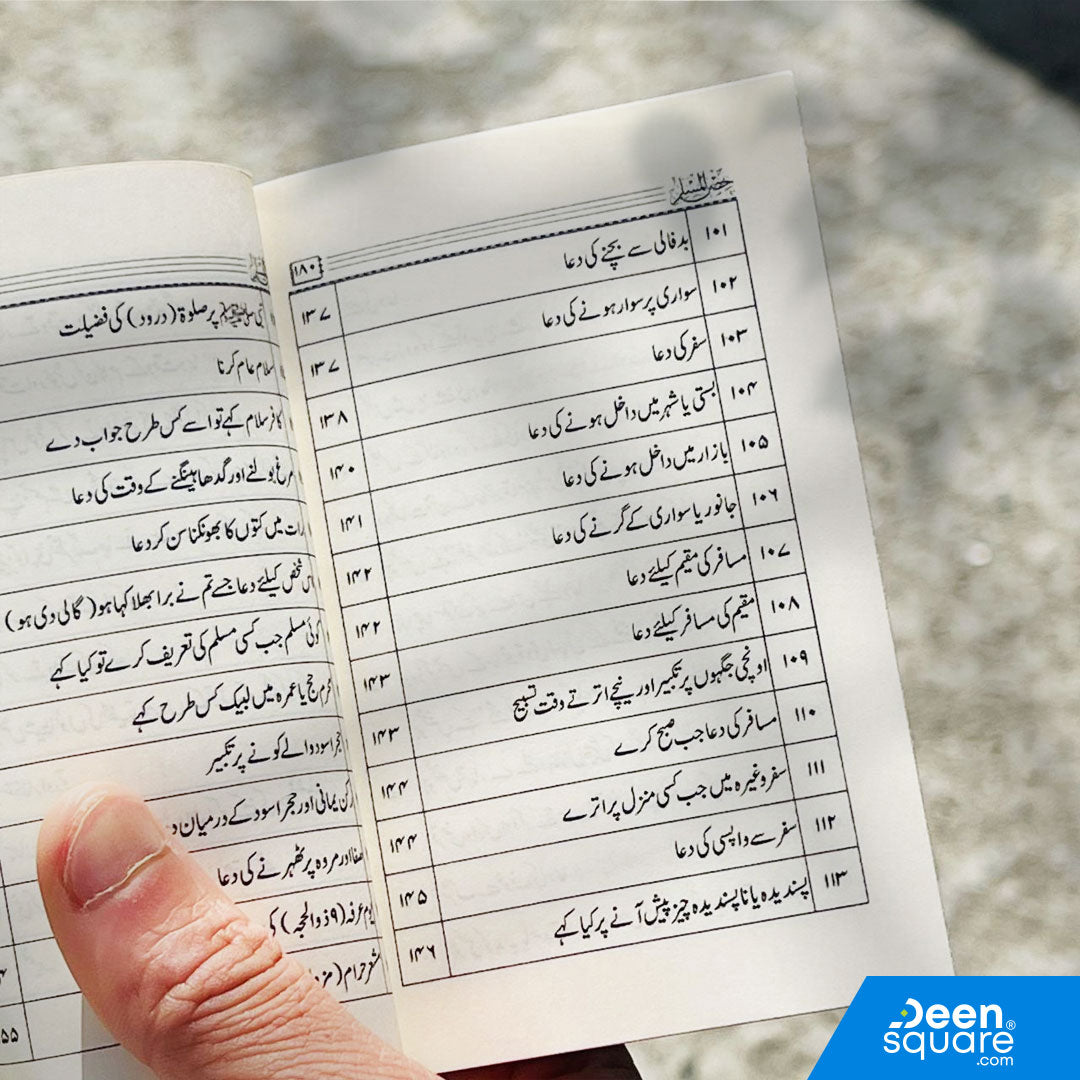 حصن المسلم
۱۸۰
۱۰۱ بدفالی سے بچنے کی دعا ۱۳۷
۱۰۲ سواری پر سوار ہونے کی دعا ۱۳۷
۱۰۳ سفر کی دعا ۱۳۸
۱۰۴ بستی یا شہر میں داخل ہونے کی دعا ۱۴۰
۱۰۵ بازار میں داخل ہونے کی دعا ۱۴۱
۱۰۶ جانور یا سواری کے گرنے کی دعا ۱۴۲
۱۰۷ مسافر کی مقیم کیلئے دعا ۱۴۲
۱۰۸ مقیم کی مسافر کیلئے دعا ۱۴۳
۱۰۹ اونچی جگہوں پر تکبیر اور نیچے اترتے وقت تسبیح ۱۴۳
۱۱۰ مسافر کی دعا جب صبح کرے ۱۴۴
۱۱۱ سفر وغیرہ میں جب کسی منزل پر اترے ۱۴۴
۱۱۲ سفر سے واپسی کی دعا ۱۴۵
۱۱۳ پسندیدہ یا ناپسندیدہ چیز پیش آنے پر کیا کہے ۱۴۶
پر صلوۃ (درود) کی فضیلت
سلام عام کرنا
کافر سلام کہے تو اسے کس طرح جواب دے
مرغ بولنے اور گدھا ہینگنے کے وقت کی دعا
رات میں کتوں کا بھونکنا سن کر دعا
شخص کیلئے دعا جسے تم نے برا بھلا کہا ہو (گالی دی ہو)
کوئی مسلم جب کسی مسلم کی تعریف کرے تو کیا کہے
حج یا عمرہ میں لبیک کس طرح کہے
حجر اسود والے کونے پر تکبیر
رکن یمانی اور حجر اسود کے درمیان
صفا اور مروہ پر ٹھہرنے کی دعا
یوم عرفہ (۹ ذوالحجہ) کی
مشعر حرام
۵۵
Deen
square®
.com